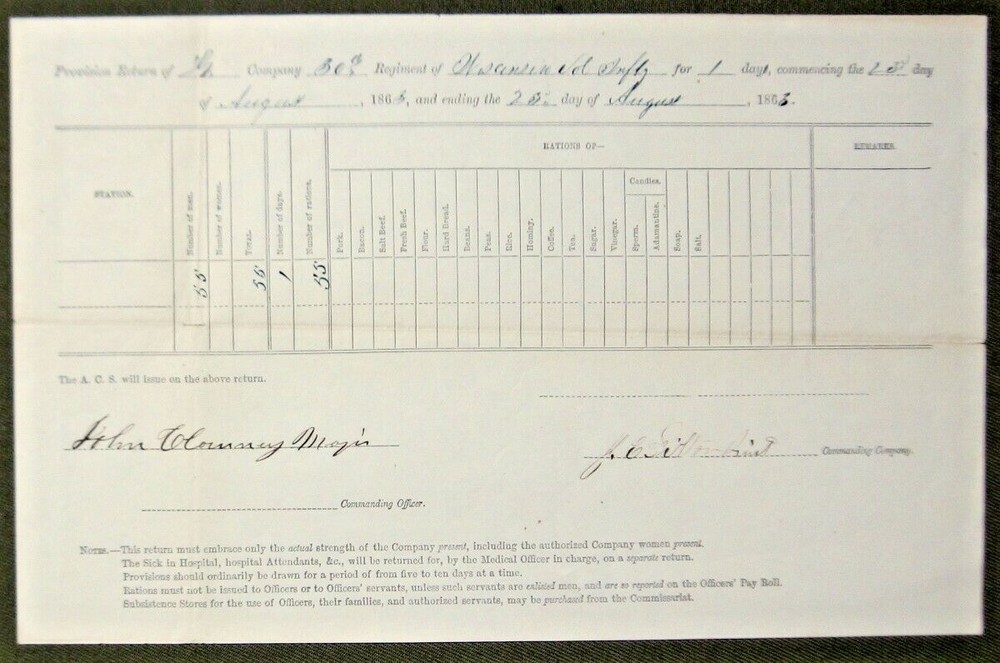 Provision Return of Company 30th Regiment of Wisconsin Vol Infty for 1 days, commencing the 23d day
of August, 1863, and ending the 23d day of August, 1863.
RATIONS OF—
REMARKS.
STATION.
Number of men.
Number of women.
TOTAL.
Number of days.
Number of rations.
Pork.
Bacon.
Salt Beef.
Fresh Beef.
Flour.
Hard Bread.
Beans.
Peas.
Rice.
Hominy.
Coffee.
Tea.
Sugar.
Vinegar.
Candles.
Sperm.
Adamantine.
Soap.
Salt.
55 55 1 55
The A. C. S. will issue on the above return.
John Clowney Major
J. C. Commanding Company.
Commanding Officer.
NOTES.—This return must embrace only the actual strength of the Company present, including the authorized Company women present.
The Sick in Hospital, hospital Attendants, &c., will be returned for, by the Medical Officer in charge, on a separate return.
Provisions should ordinarily be drawn for a period of from five to ten days at a time.
Rations must not be issued to Officers or to Officers' servants, unless such servants are enlisted men, and are so reported on the Officers' Pay Roll.
Subsistence Stores for the use of Officers, their families, and authorized servants, may be purchased from the Commissariat.